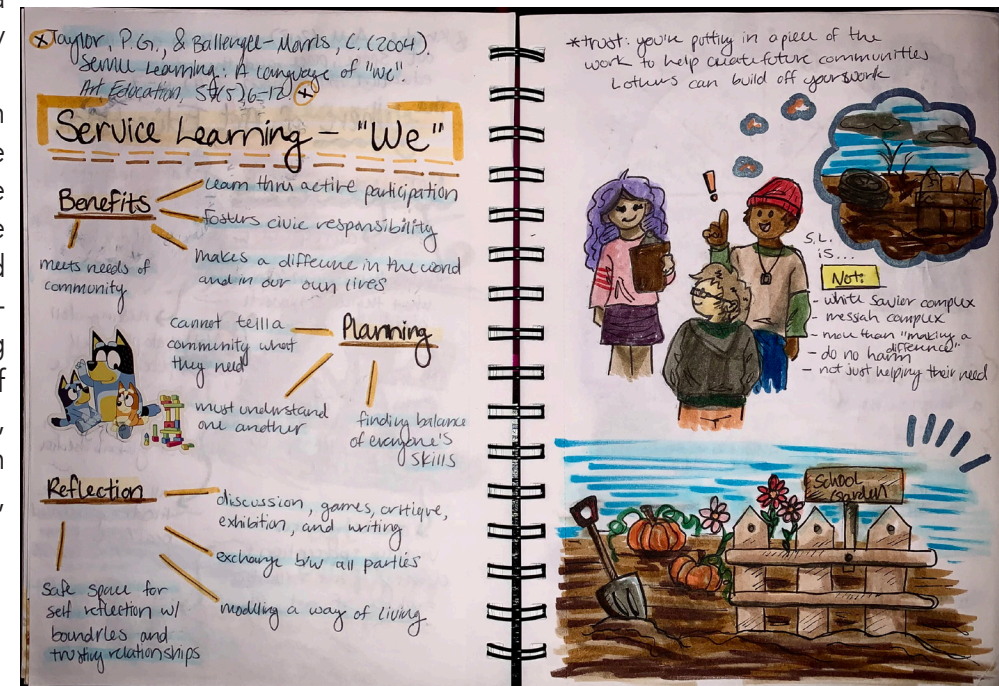 Taylor, P.G., & Ballengee-Morris, C. (2004).
Service Learning: A Language of "We".
Art Education, 57(5) 6-12
Service Learning - "We"
Benefits
learn thru active participation
fosters civic responsibility
makes a difference in the world
and in our own lives
meets needs of
community
Planning
cannot tell a
community what
they need
must understand
one another
finding balance
of everyone's
skills
Reflection
discussion, games, critique,
exhibition, and writing
exchange b/w all parties
modling a way of living
safe space for
self reflection w/
boundries and
trusting relationships
*trust: you're putting in a piece of the
work to help create future communities
others can build off your work
!
S.L.
is...
Not:
- white savier complex
- messah complex
- more than "making a
difference"
- do no harm
- not just helping their need
School
Garden